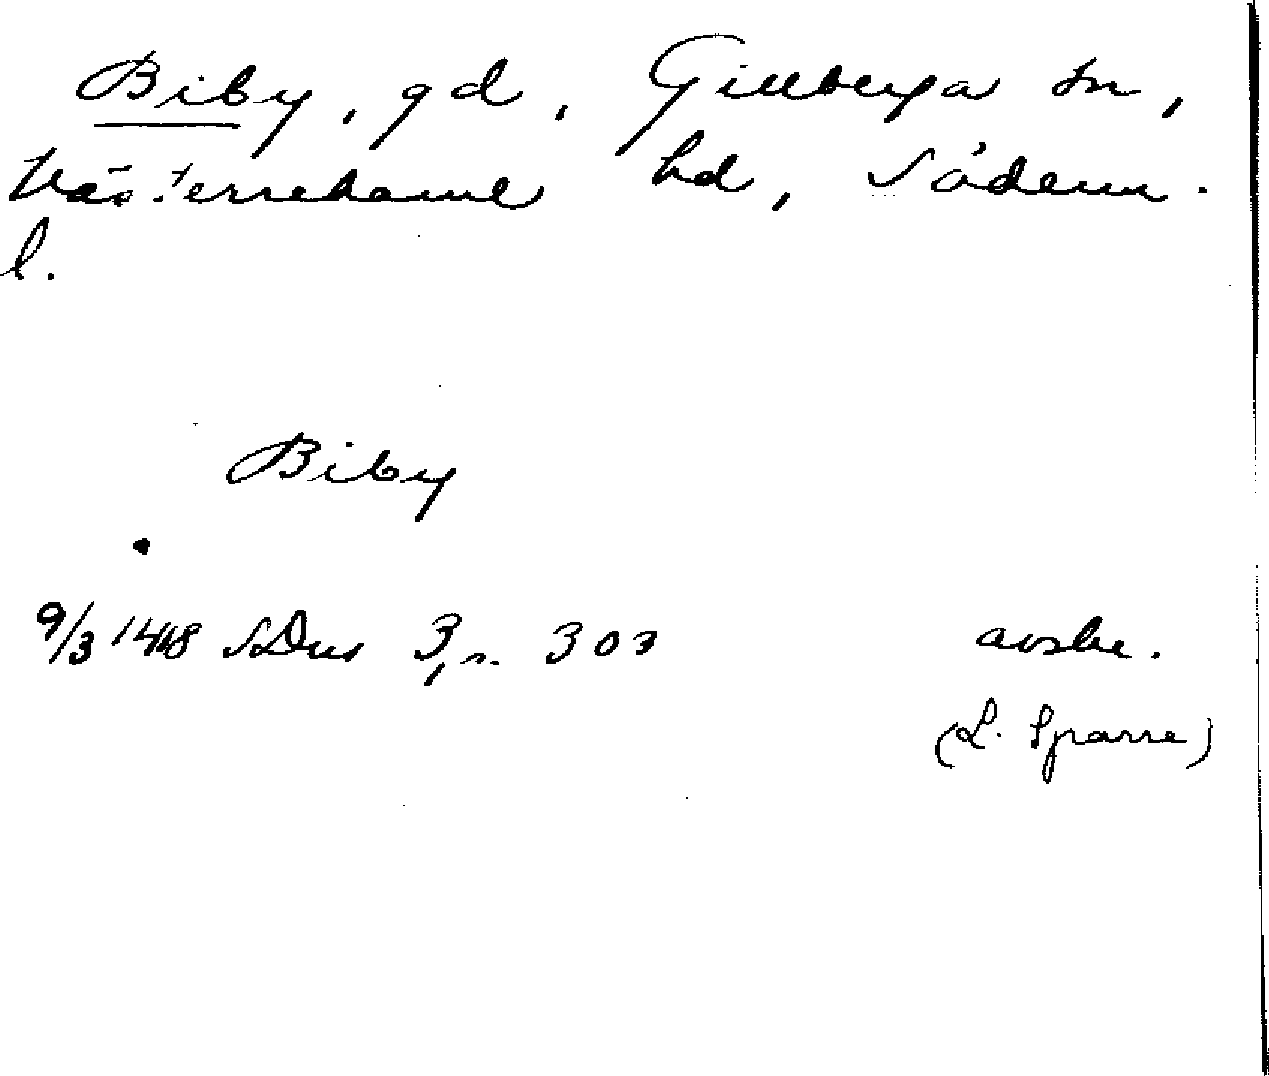 Biby, gd, Gillberga sn,
Västerrekarne hd, Söderm.
l.
Biby
9/3 1418 SDns 3, s. 303 avskr.
(L. Sparre)